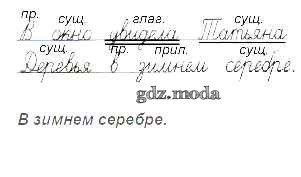 пр. сущ. глаг. сущ.
В окно увидела Татьяна
сущ. пр. прил. сущ.
Деревья в зимнем серебре.
gdz.moda
В зимнем серебре.